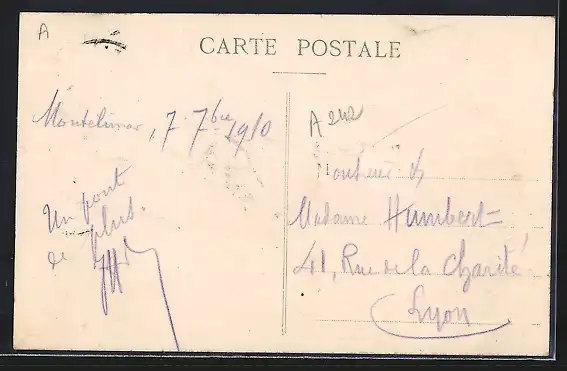 A
CARTE POSTALE
Montélimar, 7 7bre 1910
A 242
Un pont
de plus.
Monsieur &
Madame Humbert
41, Rue de la Charité
Lyon